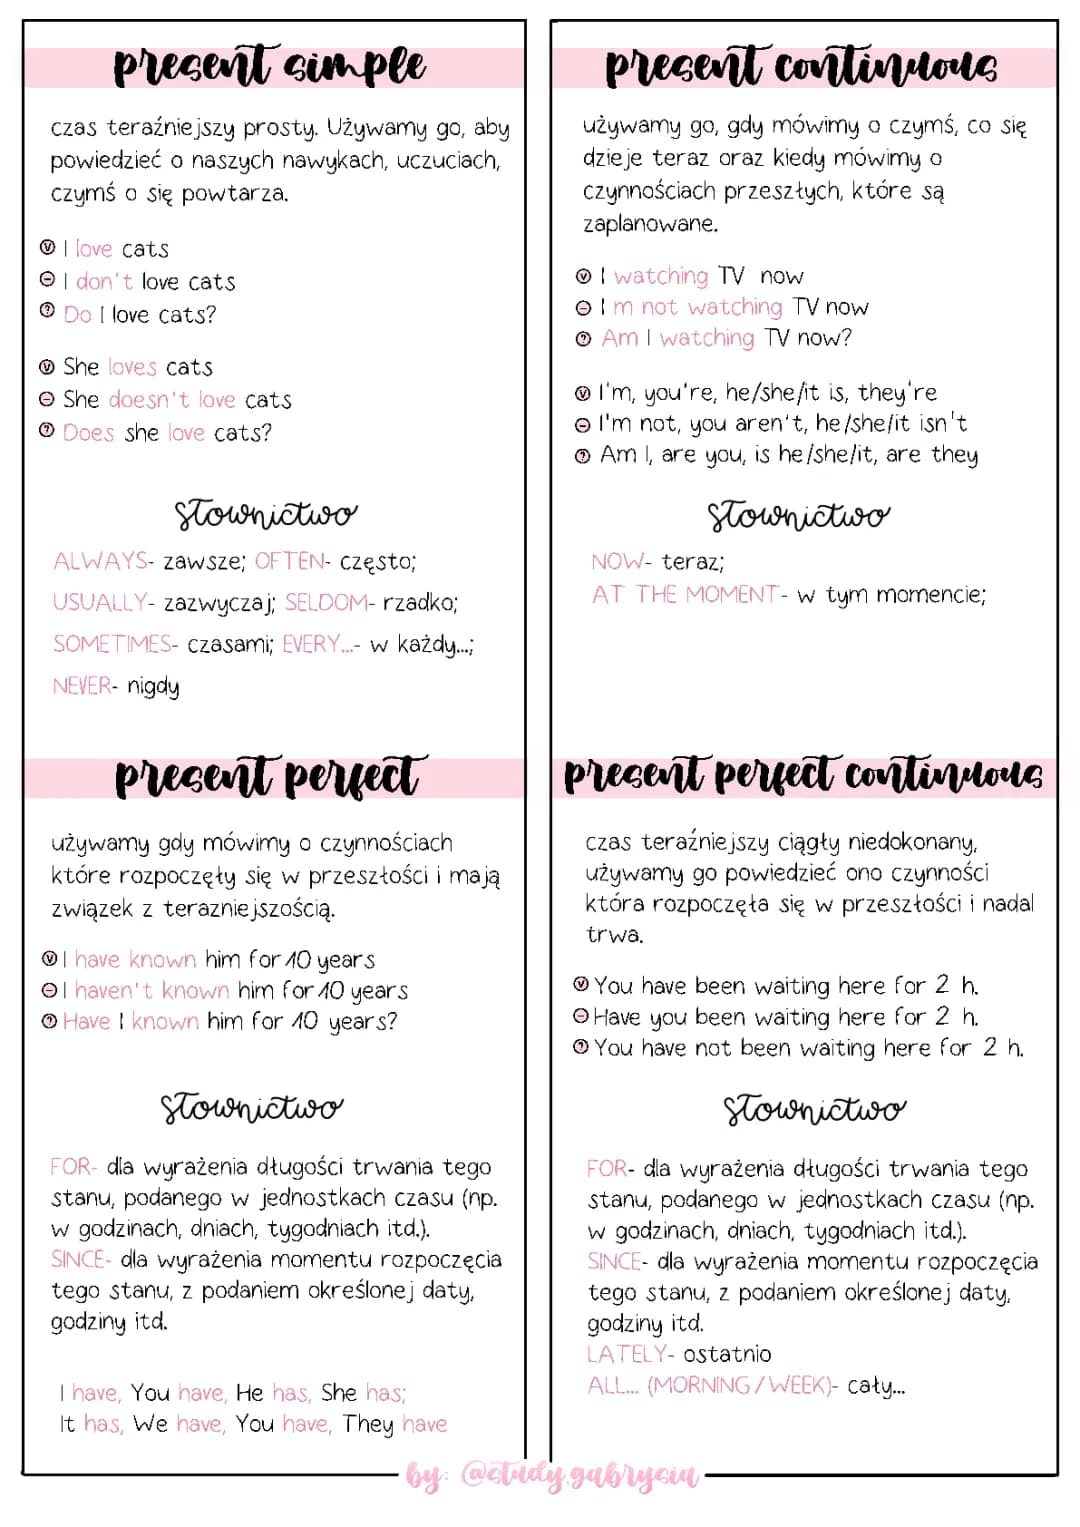 present simple
czas teraźniejszy prosty. Używamy go, aby
powiedzieć o naszych nawykach, uczuciach,
czymś o się powtarza.
I love cats
I don't love cats
Do I love cats?
She loves cats
She doesn't love cats
Does she love cats?
słownictwo
ALWAYS- zawsze; OFTEN- często;
USUALLY- zazwyczaj; SELDOM- rzadko;
SOMETIMES- czasami; EVERY...- w każdy...;
NEVER- nigdy
present continuous
używamy go, gdy mówimy o czymś, co się
dzieje teraz oraz kiedy mówimy o
czynnościach przeszłych, które są
zaplanowane.
I watching TV now
I m not watching TV now
Am I watching TV now?
I'm, you're, he/she/it is, they're
I'm not, you aren't, he/she/it isn't
Am I, are you, is he/she/it, are they
słownictwo
NOW- teraz;
AT THE MOMENT- w tym momencie;
present perfect
używamy gdy mówimy o czynnościach
które rozpoczęły się w przeszłości i mają
związek z terazniejszością.
I have known him for 10 years
I haven't known him for 10 years
Have I known him for 10 years?
słownictwo
FOR- dla wyrażenia długości trwania tego
stanu, podanego w jednostkach czasu (np.
w godzinach, dniach, tygodniach itd.).
SINCE- dla wyrażenia momentu rozpoczęcia
tego stanu, z podaniem określonej daty,
godziny itd.
I have, You have, He has, She has;
It has, We have, You have, They have
present perfect continuous
czas teraźniejszy ciągły niedokonany,
używamy go powiedzieć ono czynności
która rozpoczęła się w przeszłości i nadal
trwa.
You have been waiting here for 2 h.
Have you been waiting here for 2 h.
You have not been waiting here for 2 h.
słownictwo
FOR- dla wyrażenia długości trwania tego
stanu, podanego w jednostkach czasu (np.
w godzinach, dniach, tygodniach itd.).
SINCE- dla wyrażenia momentu rozpoczęcia
tego stanu, z podaniem określonej daty,
godziny itd.
LATELY- ostatnio
ALL... (MORNING/WEEK)- cały...
by: @study.gabrysia